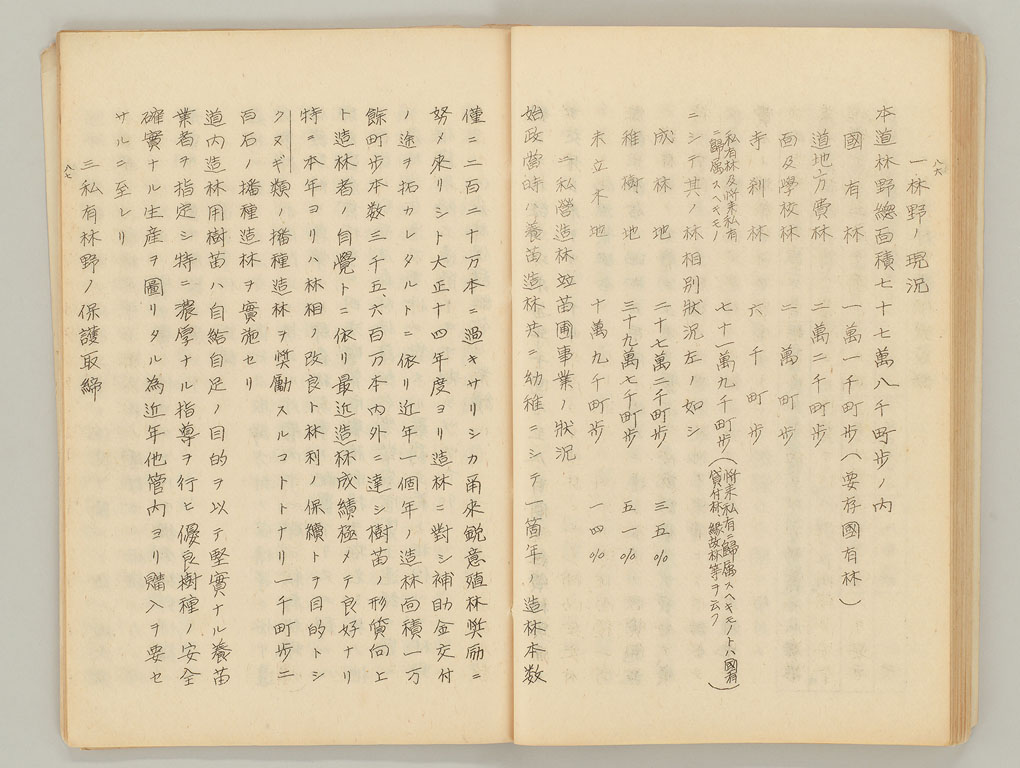 八六
一林野ノ現況
本道林野總面積七十七萬八千町歩ノ内
國有林 一萬一千町歩(要存國有林)
道地方費林 二萬二千町歩
面及學校林 二萬町歩
寺刹林 六千町歩
私有林及將來私有ニ歸属スヘキモノ 七十一萬九千町歩(將来私有ニ歸属スヘキモノトハ國有貸付林、緣故林等ヲ云フ)
ニシテ其ノ林相別狀況左ノ如シ
成林地 二十七萬二千町歩 三五%
稚樹地 三十九萬七千町歩 五一%
未立木地 十萬九千町歩 一四%
二私營造林竝苗圃事業ノ狀況
始政當時ハ養苗造林共ニ幼稚ニシテ一箇年ノ造林本数
僅ニ二百二十万本ニ過キサリシカ甭來鋭意殖林獎励ニ
努メ來リシト大正十四年度ヨリ造林ニ對シ補助金交付
ノ途ヲ拓カレタルトニ依リ近年一個年ノ造林面積一万
餘町歩本数三千五、六百万本内外ニ達シ樹苗ノ形質向上
ト造林者ノ自覺トニ依リ最近造林成績極メテ良好ナリ
特ニ本年ヨリハ林相ノ改良ト林利ノ保續トヲ目的トシ
クヌギ類ノ播種造林ヲ奬勵スルコトトナリ一千町歩ニ
百石ノ播種造林ヲ實施セリ
道内造林用樹苗ハ自給自足ノ目的ヲ以テ堅實ナル養苗
業者ヲ指定シ特ニ濃厚ナル指導ヲ行ヒ優良樹種ノ安全
確實ナル生産ヲ圖リタル為近年他管内ヨリ購入ヲ要セ
サルニ至レリ
三私有林野ノ保護取締
八七